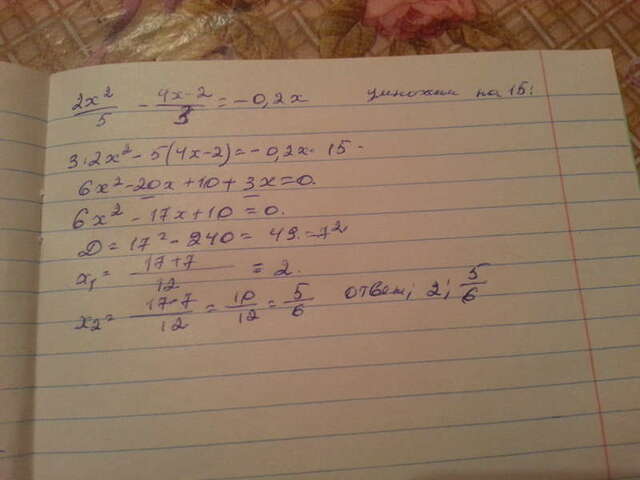 2x²/5 - 4x-2/3 = -0,2x умножаем на 15:
3·2x² - 5(4x-2) = -0,2x·15
6x² - 20x + 10 + 3x = 0.
6x² - 17x + 10 = 0.
D = 17² - 240 = 49 = 7²
x₁ = 17+7/12 = 2.
x₂ = 17-7/12 = 10/12 = 5/6 Ответ: 2; 5/6